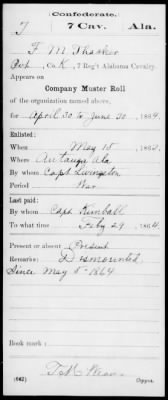 Confederate.
T 7 Cav. Ala.
F. M. Thasher
Pvt, Co. K, 7 Reg't Alabama Cavalry.
Appears on
Company Muster Roll
of the organization named above,
for April 30 to June 30, 1864.
Enlisted:
When May 15, 186
Where Autauga Ala
By whom Capt Livingston
Period War
Last paid:
By whom Capt Kimball
To what time Feby 29, 1864
Present or absent Present
Remarks: Dismounted
Since May 5th 1864
Book mark:
(642) Copyist.